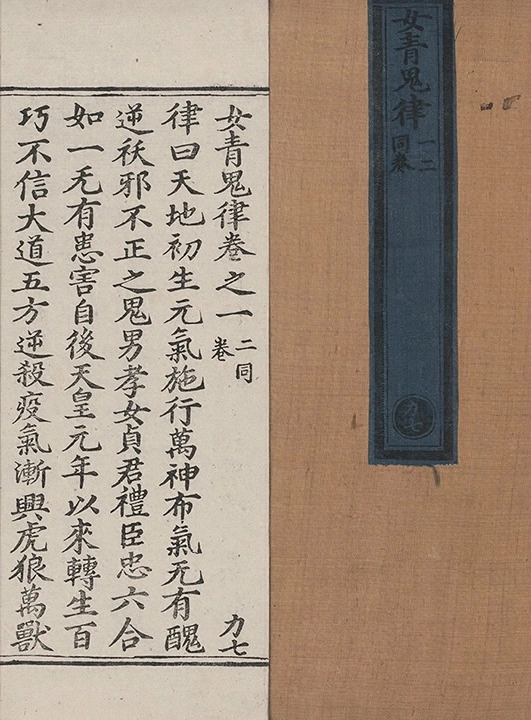 女青鬼律 一二同卷
力七
女青鬼律卷之一 二同卷 力七
律曰天地初生元氣施行萬神布氣无有醜
逆祅邪不正之鬼男孝女貞君禮臣忠六合
如一无有患害自後天皇元年以來轉生百
巧不信大道五方逆殺疫氣漸興虎狼萬獸